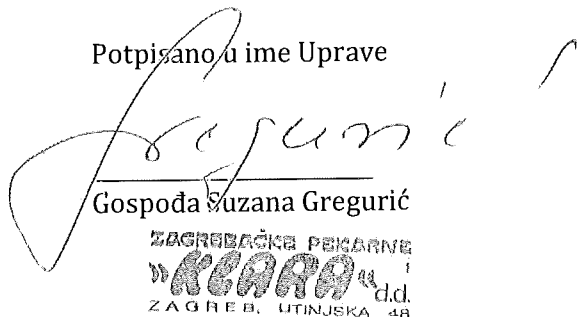 Potpisano u ime Uprave
Gregurić
Gospođa Suzana Gregurić
ZAGREBAČKE PEKARNE
"KLARA" d.d.
ZAGREB, UTINJSKA 48